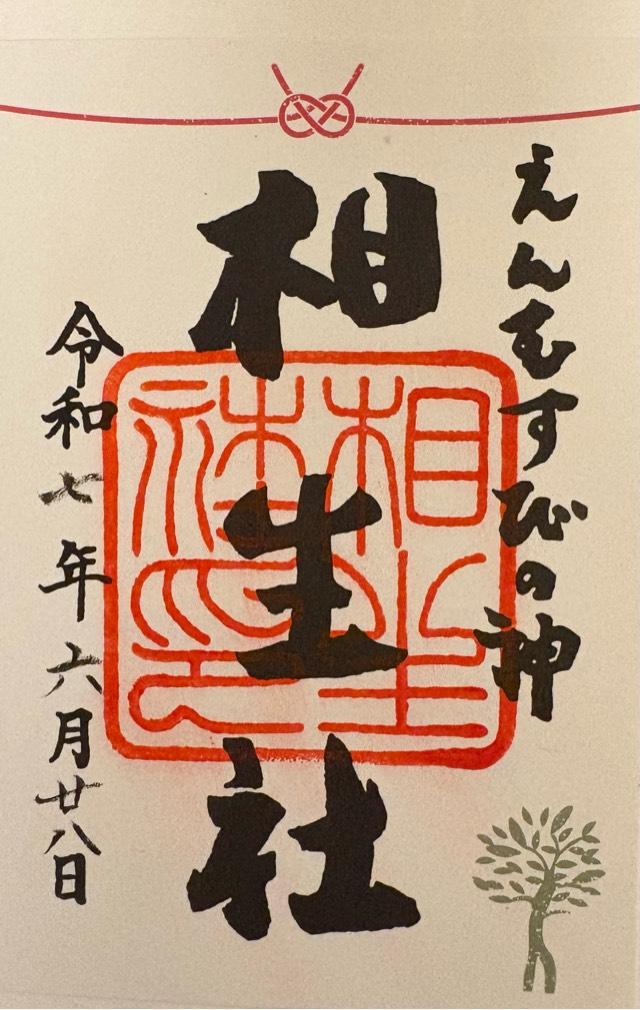 えんむすびの神
相生社
相生社印
令和七年六月廿八日